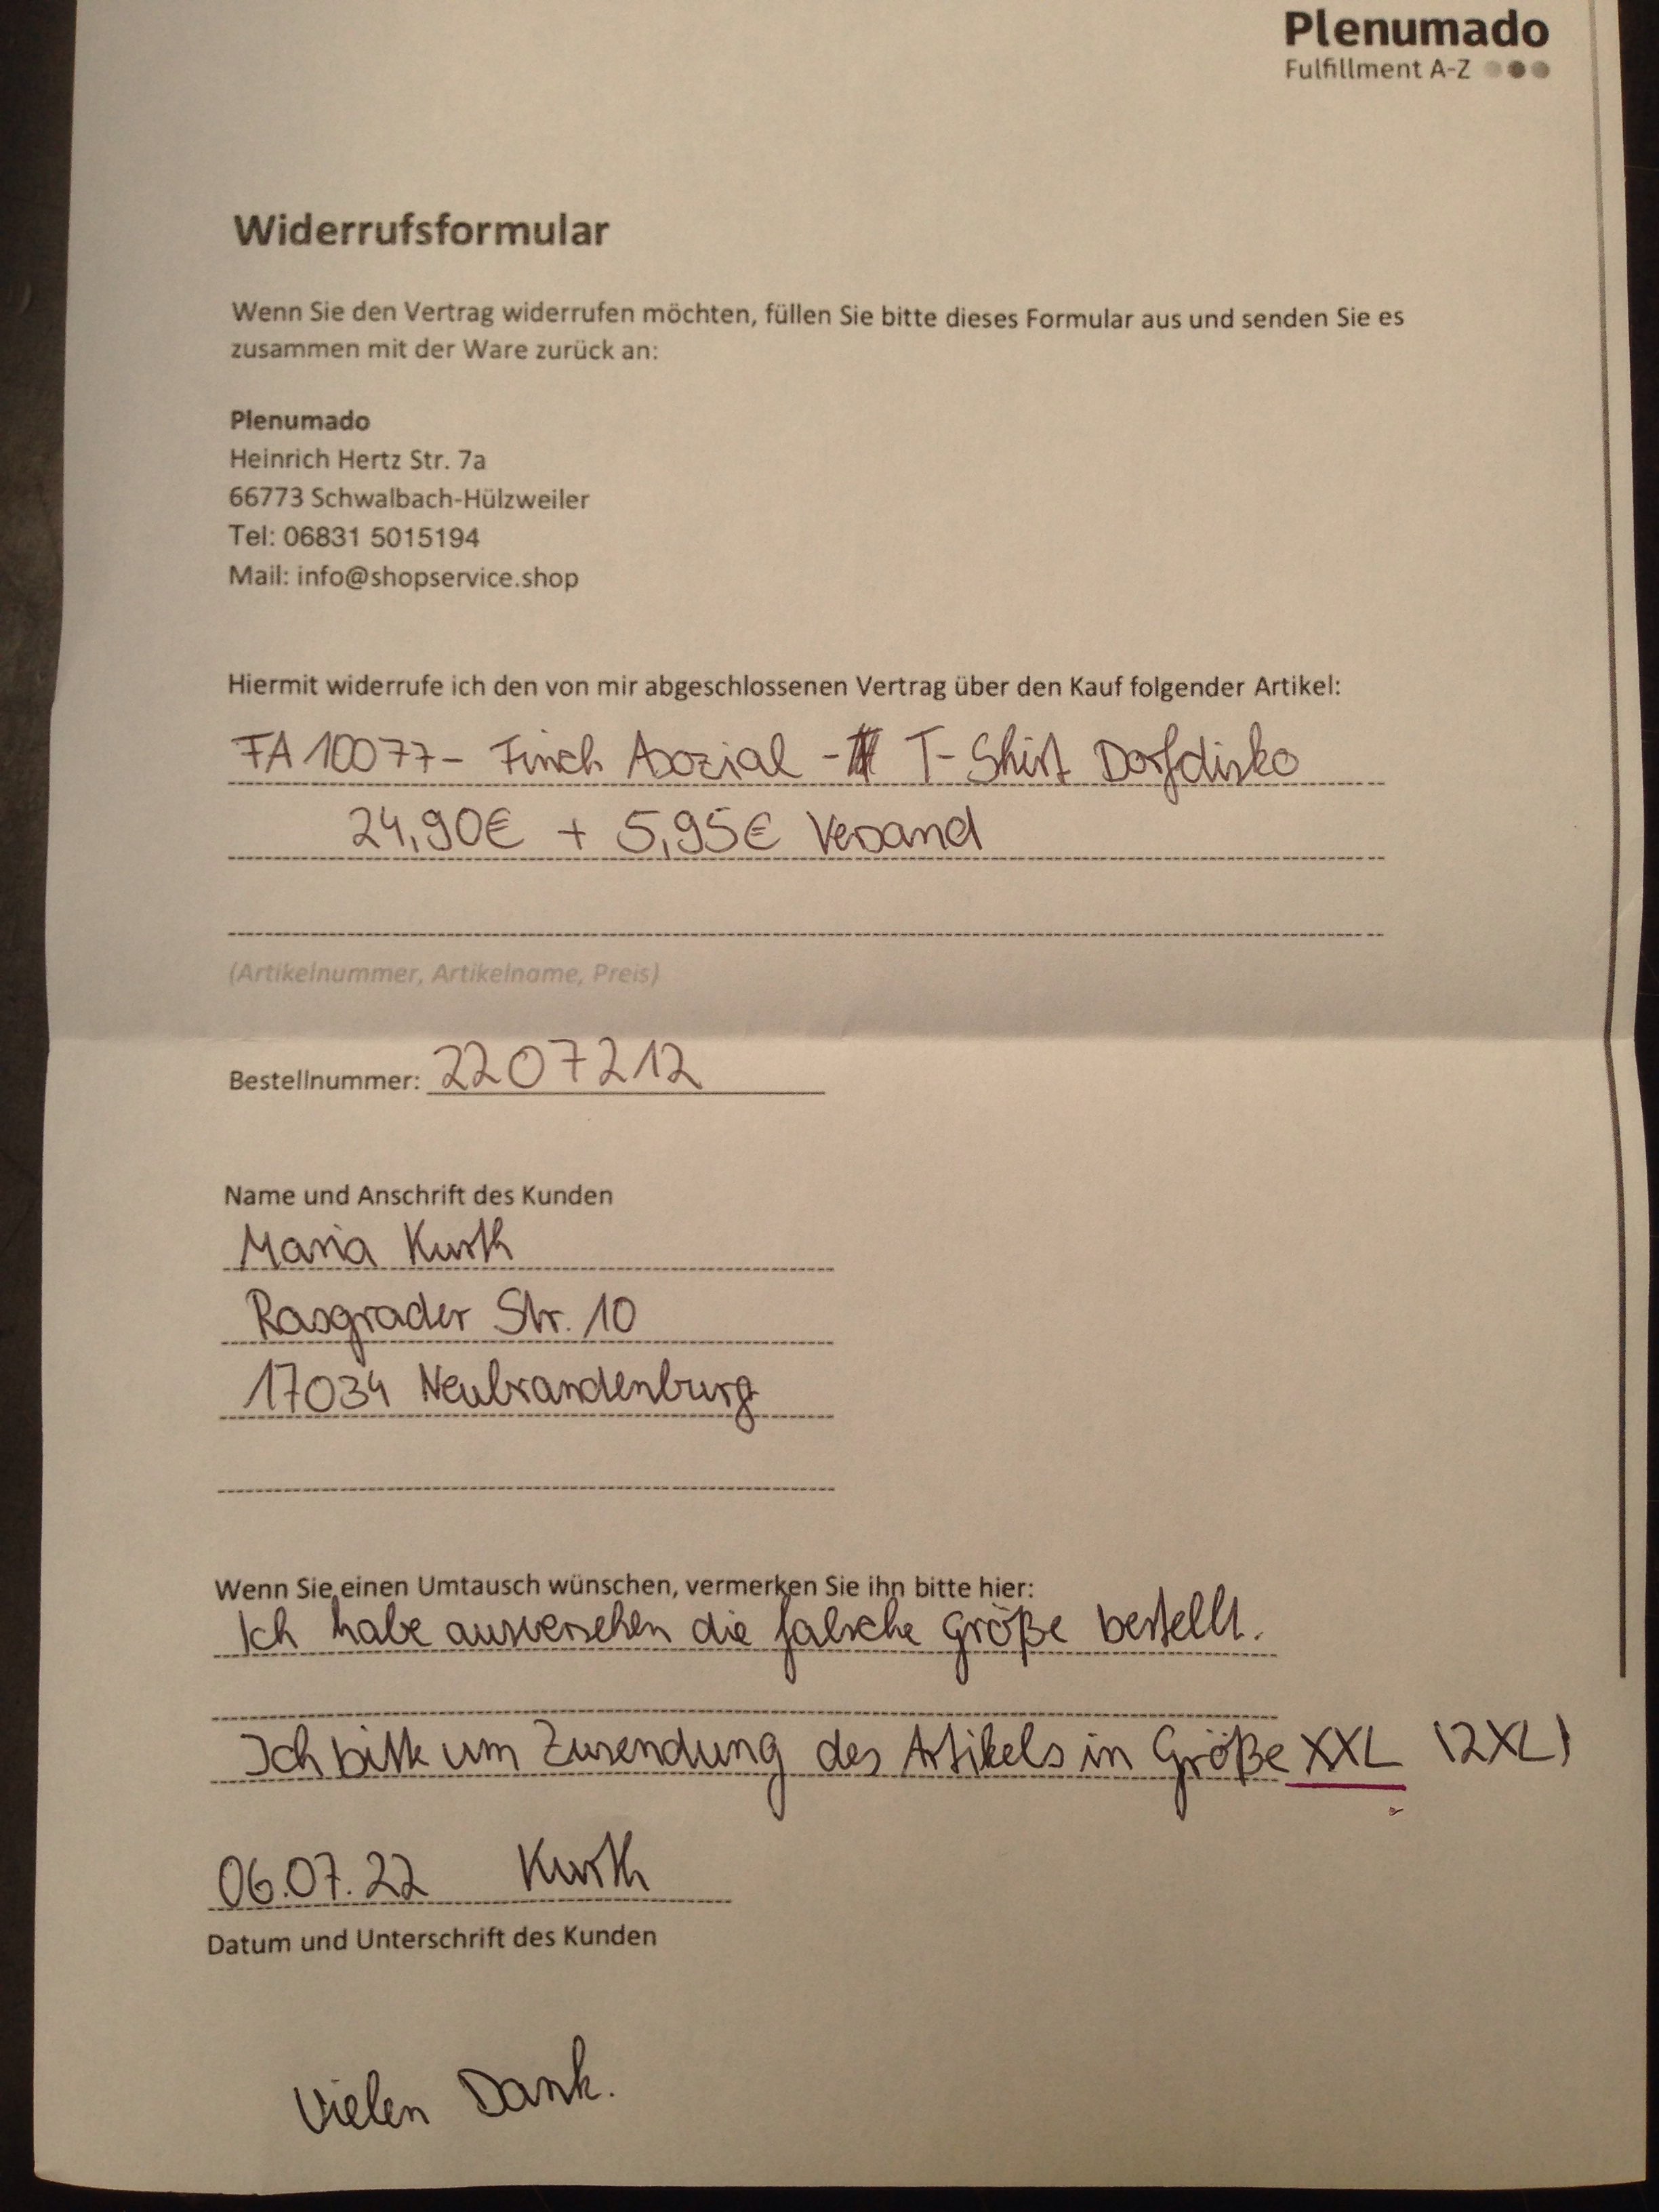 Plenumado
Fulfillment A-Z
Widerrufsformular
Wenn Sie den Vertrag widerrufen möchten, füllen Sie bitte dieses Formular aus und senden Sie es
zusammen mit der Ware zurück an:
Plenumado
Heinrich Hertz Str. 7a
66773 Schwalbach-Hülzweiler
Tel: 06831 5015194
Mail: info@shopservice.shop
Hiermit widerrufe ich den von mir abgeschlossenen Vertrag über den Kauf folgender Artikel:
FA10077- Finch Asozial - T-Shirt Dorfdisko
24,90€ + 5,95€ Versand
(Artikelnummer, Artikelname, Preis)
Bestellnummer: 2207212
Name und Anschrift des Kunden
Maria Kurth
Rasgrader Str. 10
17034 Neubrandenburg
Wenn Sie einen Umtausch wünschen, vermerken Sie ihn bitte hier:
Ich habe ausversehen die falsche Größe bestellt.
Ich bitte um Zusendung des Artikels in Größe XXL (2XL)
06.07.22 Kurth
Datum und Unterschrift des Kunden
Vielen Dank.